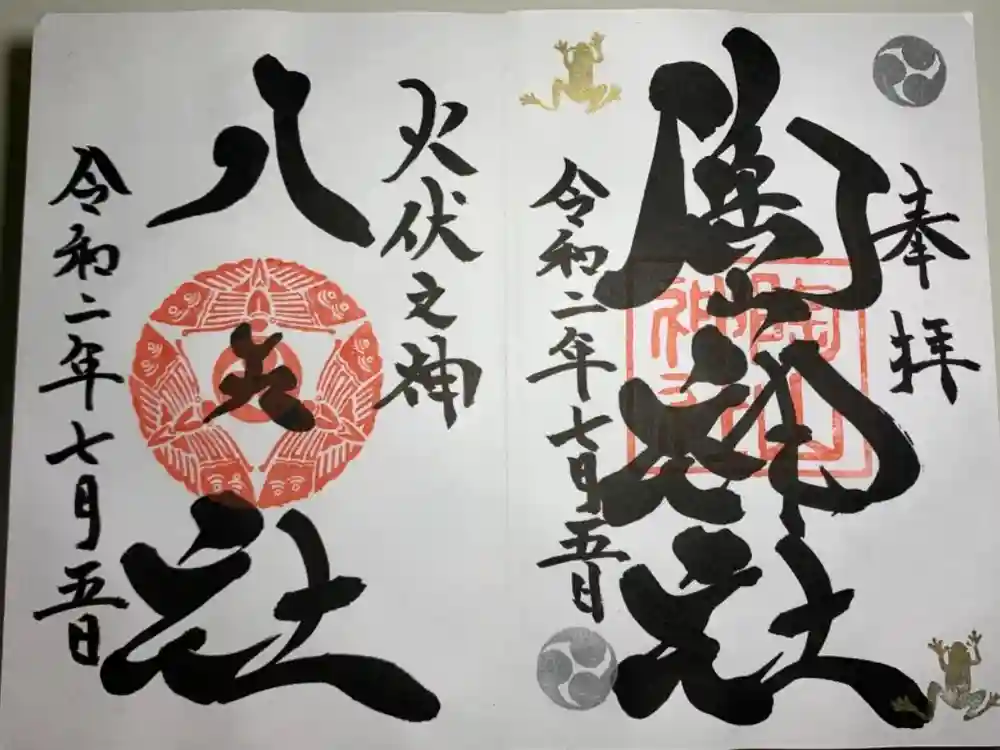 奉拝
陶山神社
令和二年七月五日
陶山
神社
火伏之神
八天社
令和二年七月五日